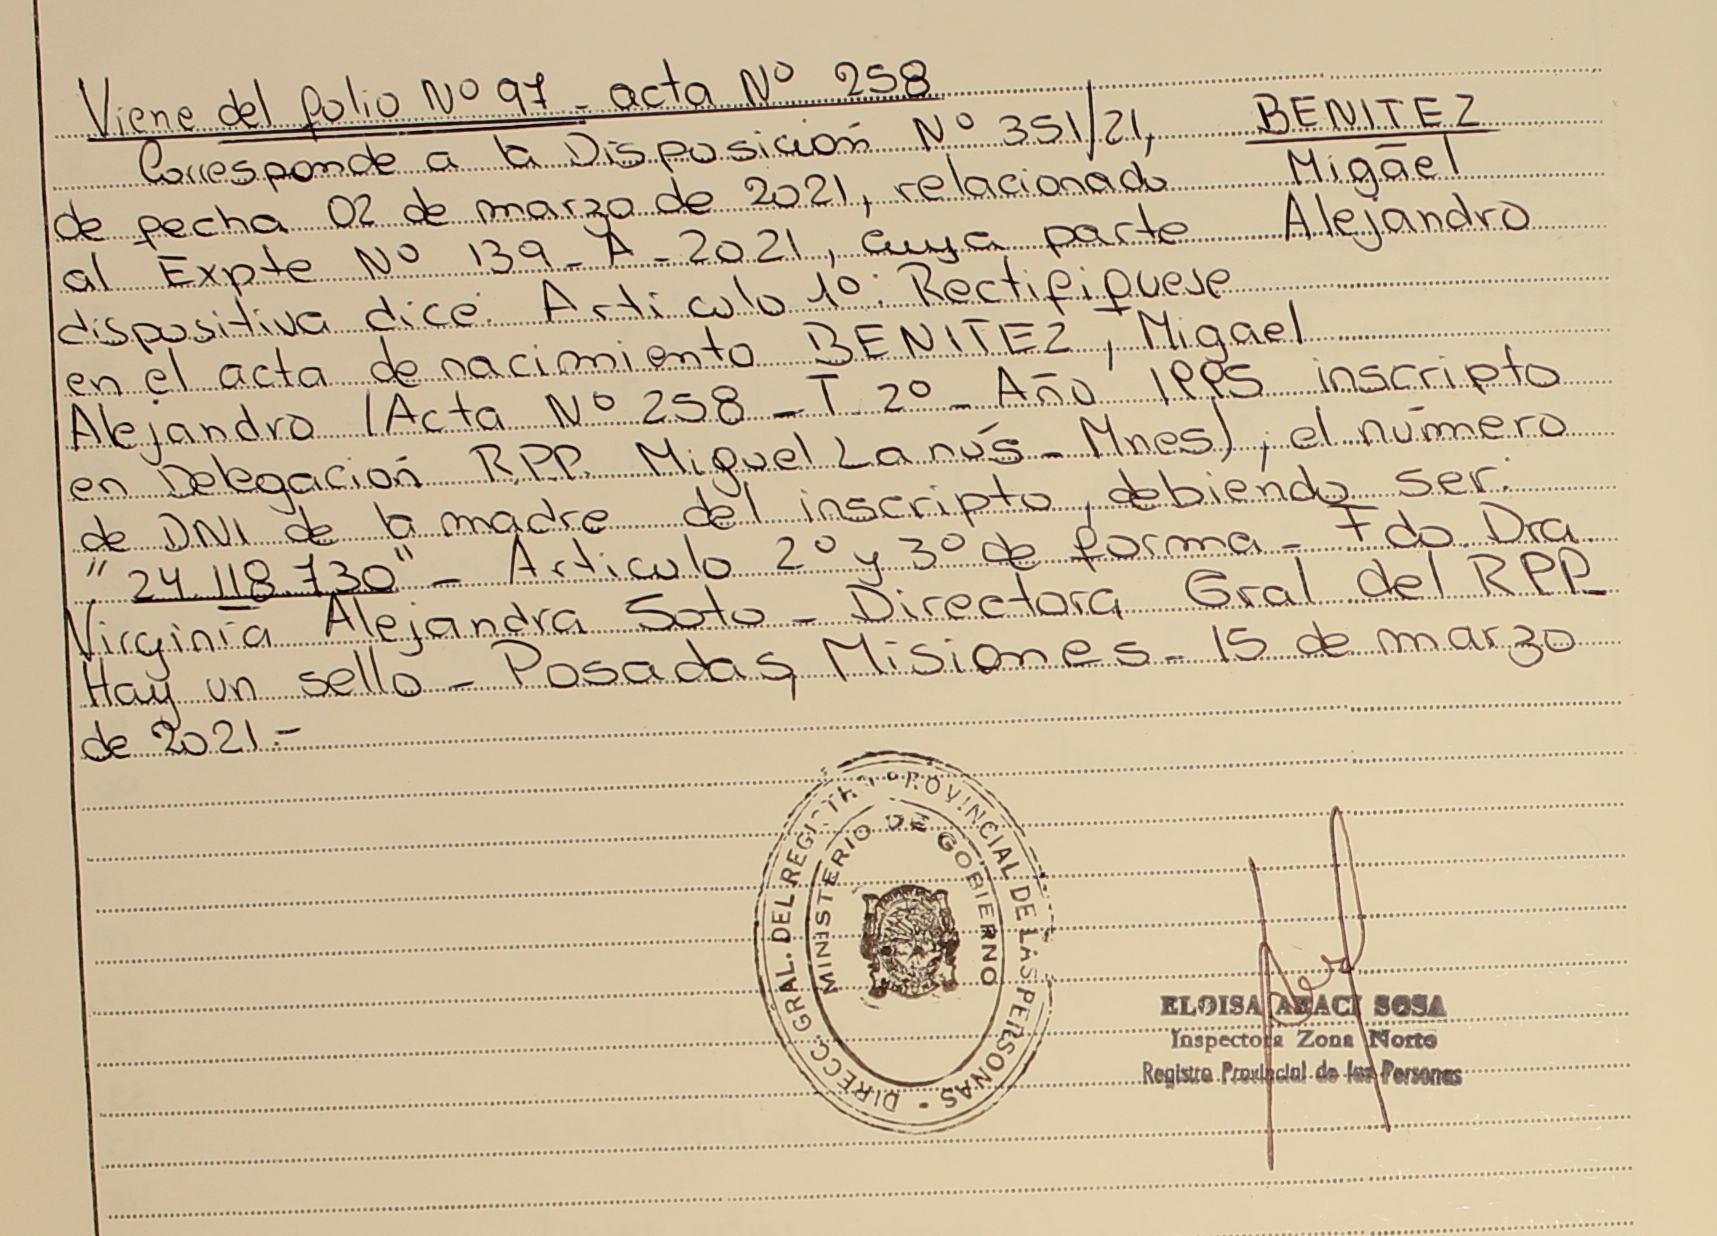 Viene del folio Nº 97 - acta Nº 258
Corresponde a la Disposición Nº 351/21,
de fecha 02 de marzo de 2021, relacionado
al Expte Nº 139 - A - 2021, cuya parte
dispositiva dice: Articulo 1º: Rectifiquese
en el acta de nacimiento BENITEZ, Migael
Alejandro (Acta Nº 258 - T 2º - Año 1995 inscripto
en Delegación R.P.P. Miguel Lanús - Mnes), el número
de DNI de la madre del inscripto, debiendo ser:
"24.118.730" - Articulo 2º y 3º de forma - Fdo. Dra.
Virginia Alejandra Soto - Directora Gral del RPP.
Hay un sello - Posadas, Misiones - 15 de marzo
de 2021.-
BENITEZ
Migael
Alejandro
DIRECC. GRAL. DEL REGISTRO PROVINCIAL DE LAS PERSONAS
MINISTERIO DE GOBIERNO
ELOISA ARACI SOSA
Inspectora Zona Norte
Registro Provincial de las Personas